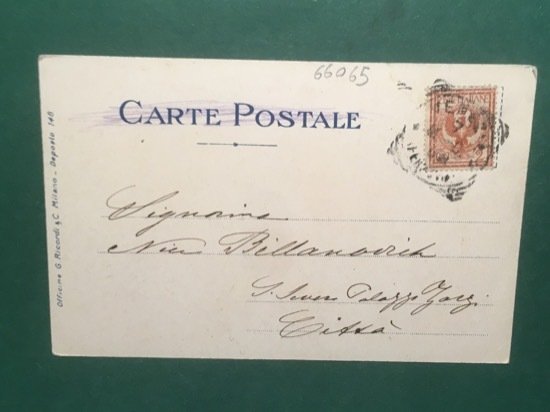 66065
CARTE POSTALE
Officine G. Ricordi & C. Milano - Deposto 148
Signorina
Nici Billanovich
S. Severo Palazzo Zorzi
Città